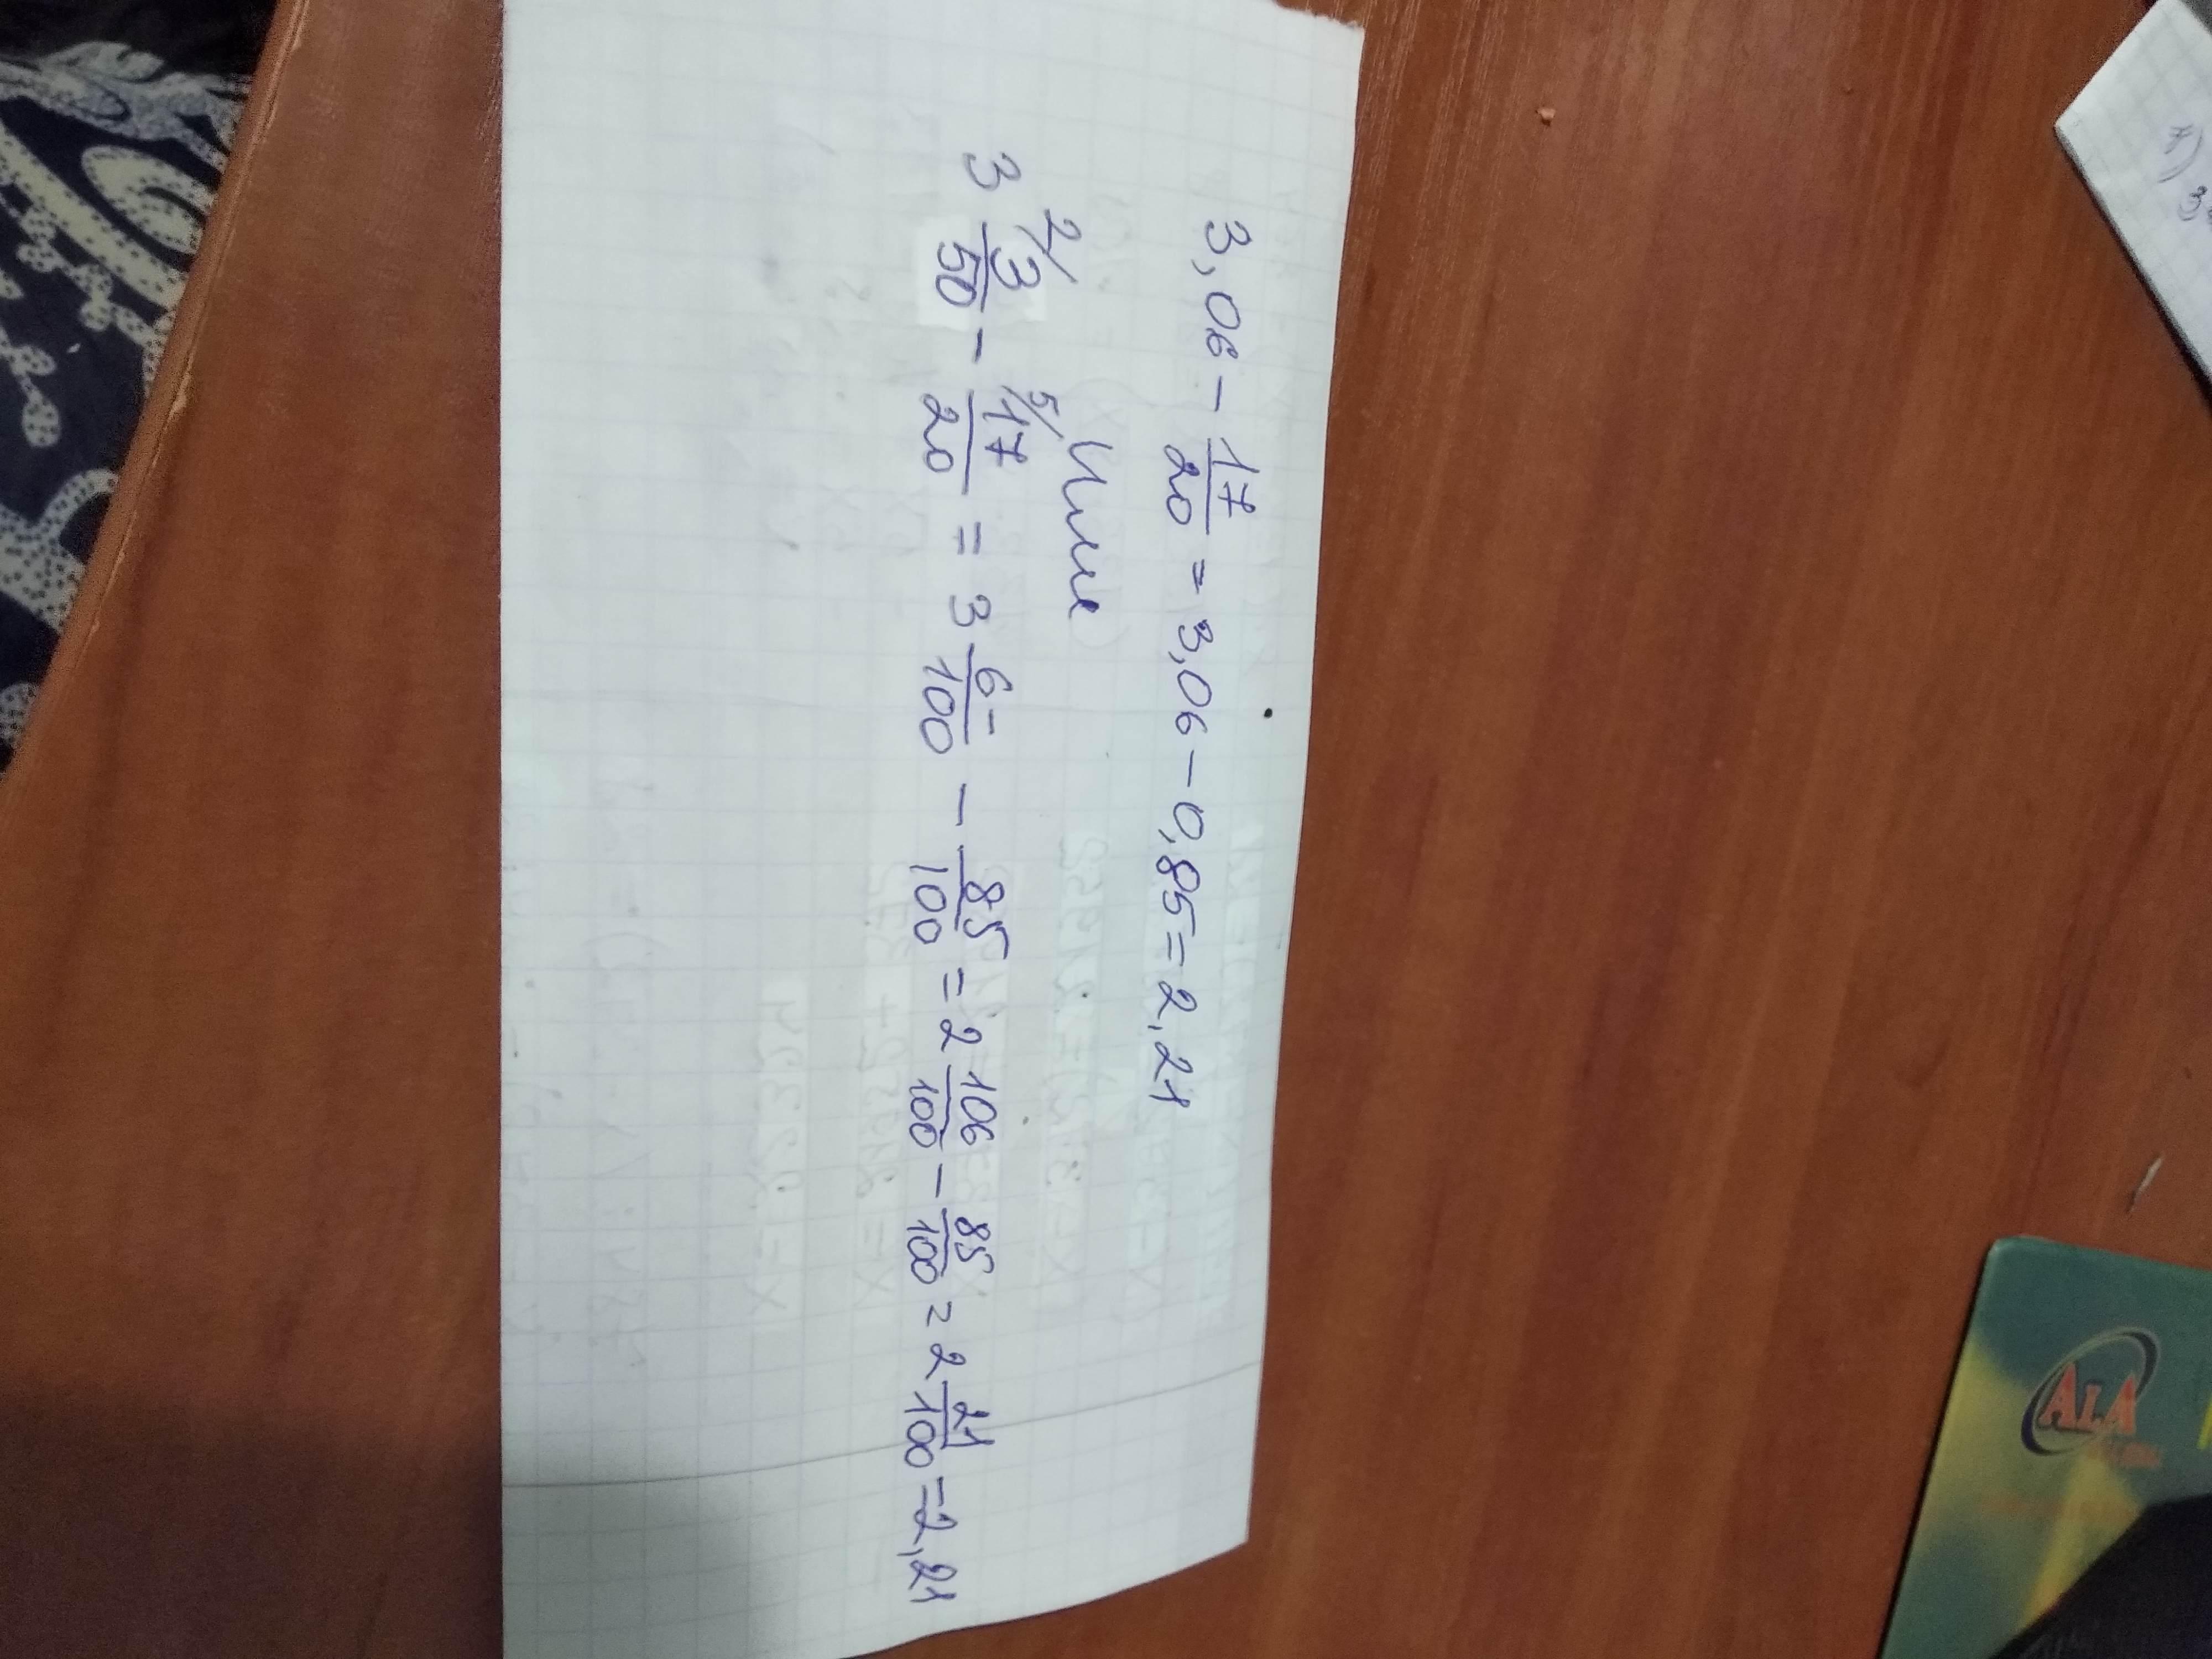 3,06 - 17/20 = 3,06 - 0,85 = 2,21
Или
2/ 5/
3 3/50 - 17/20 = 3 6/100 - 85/100 = 2 106/100 - 85/100 = 2 21/100 = 2,21
ALA